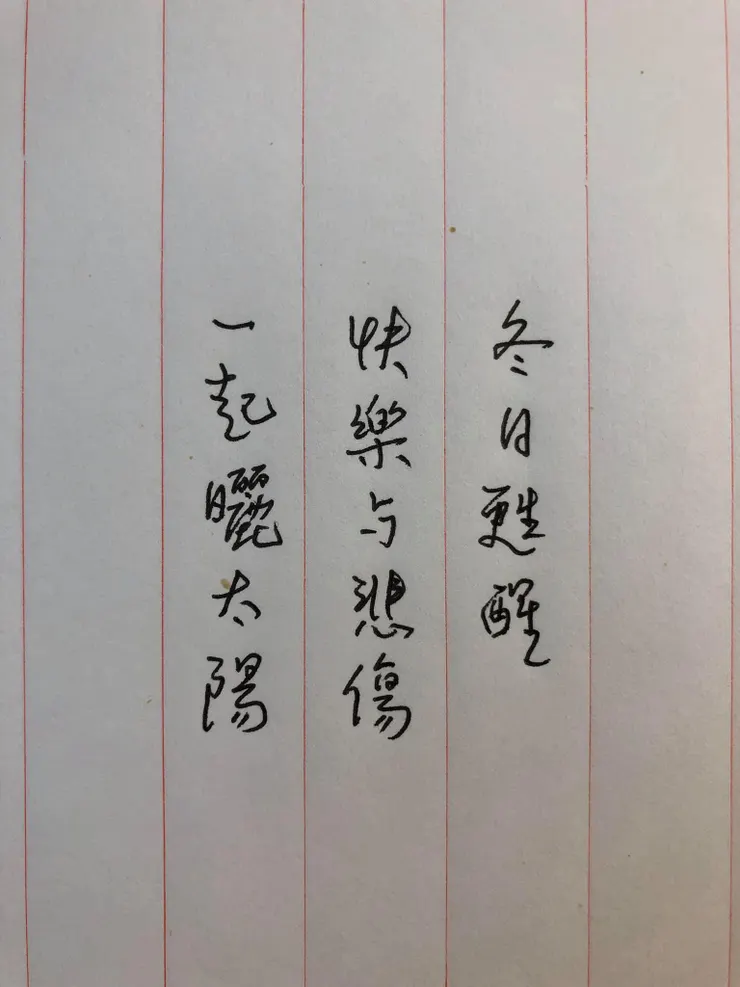 冬日甦醒
快樂与悲傷
一起曬太陽